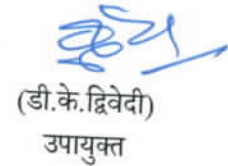 (डी.के.द्विवेदी)
उपायुक्त